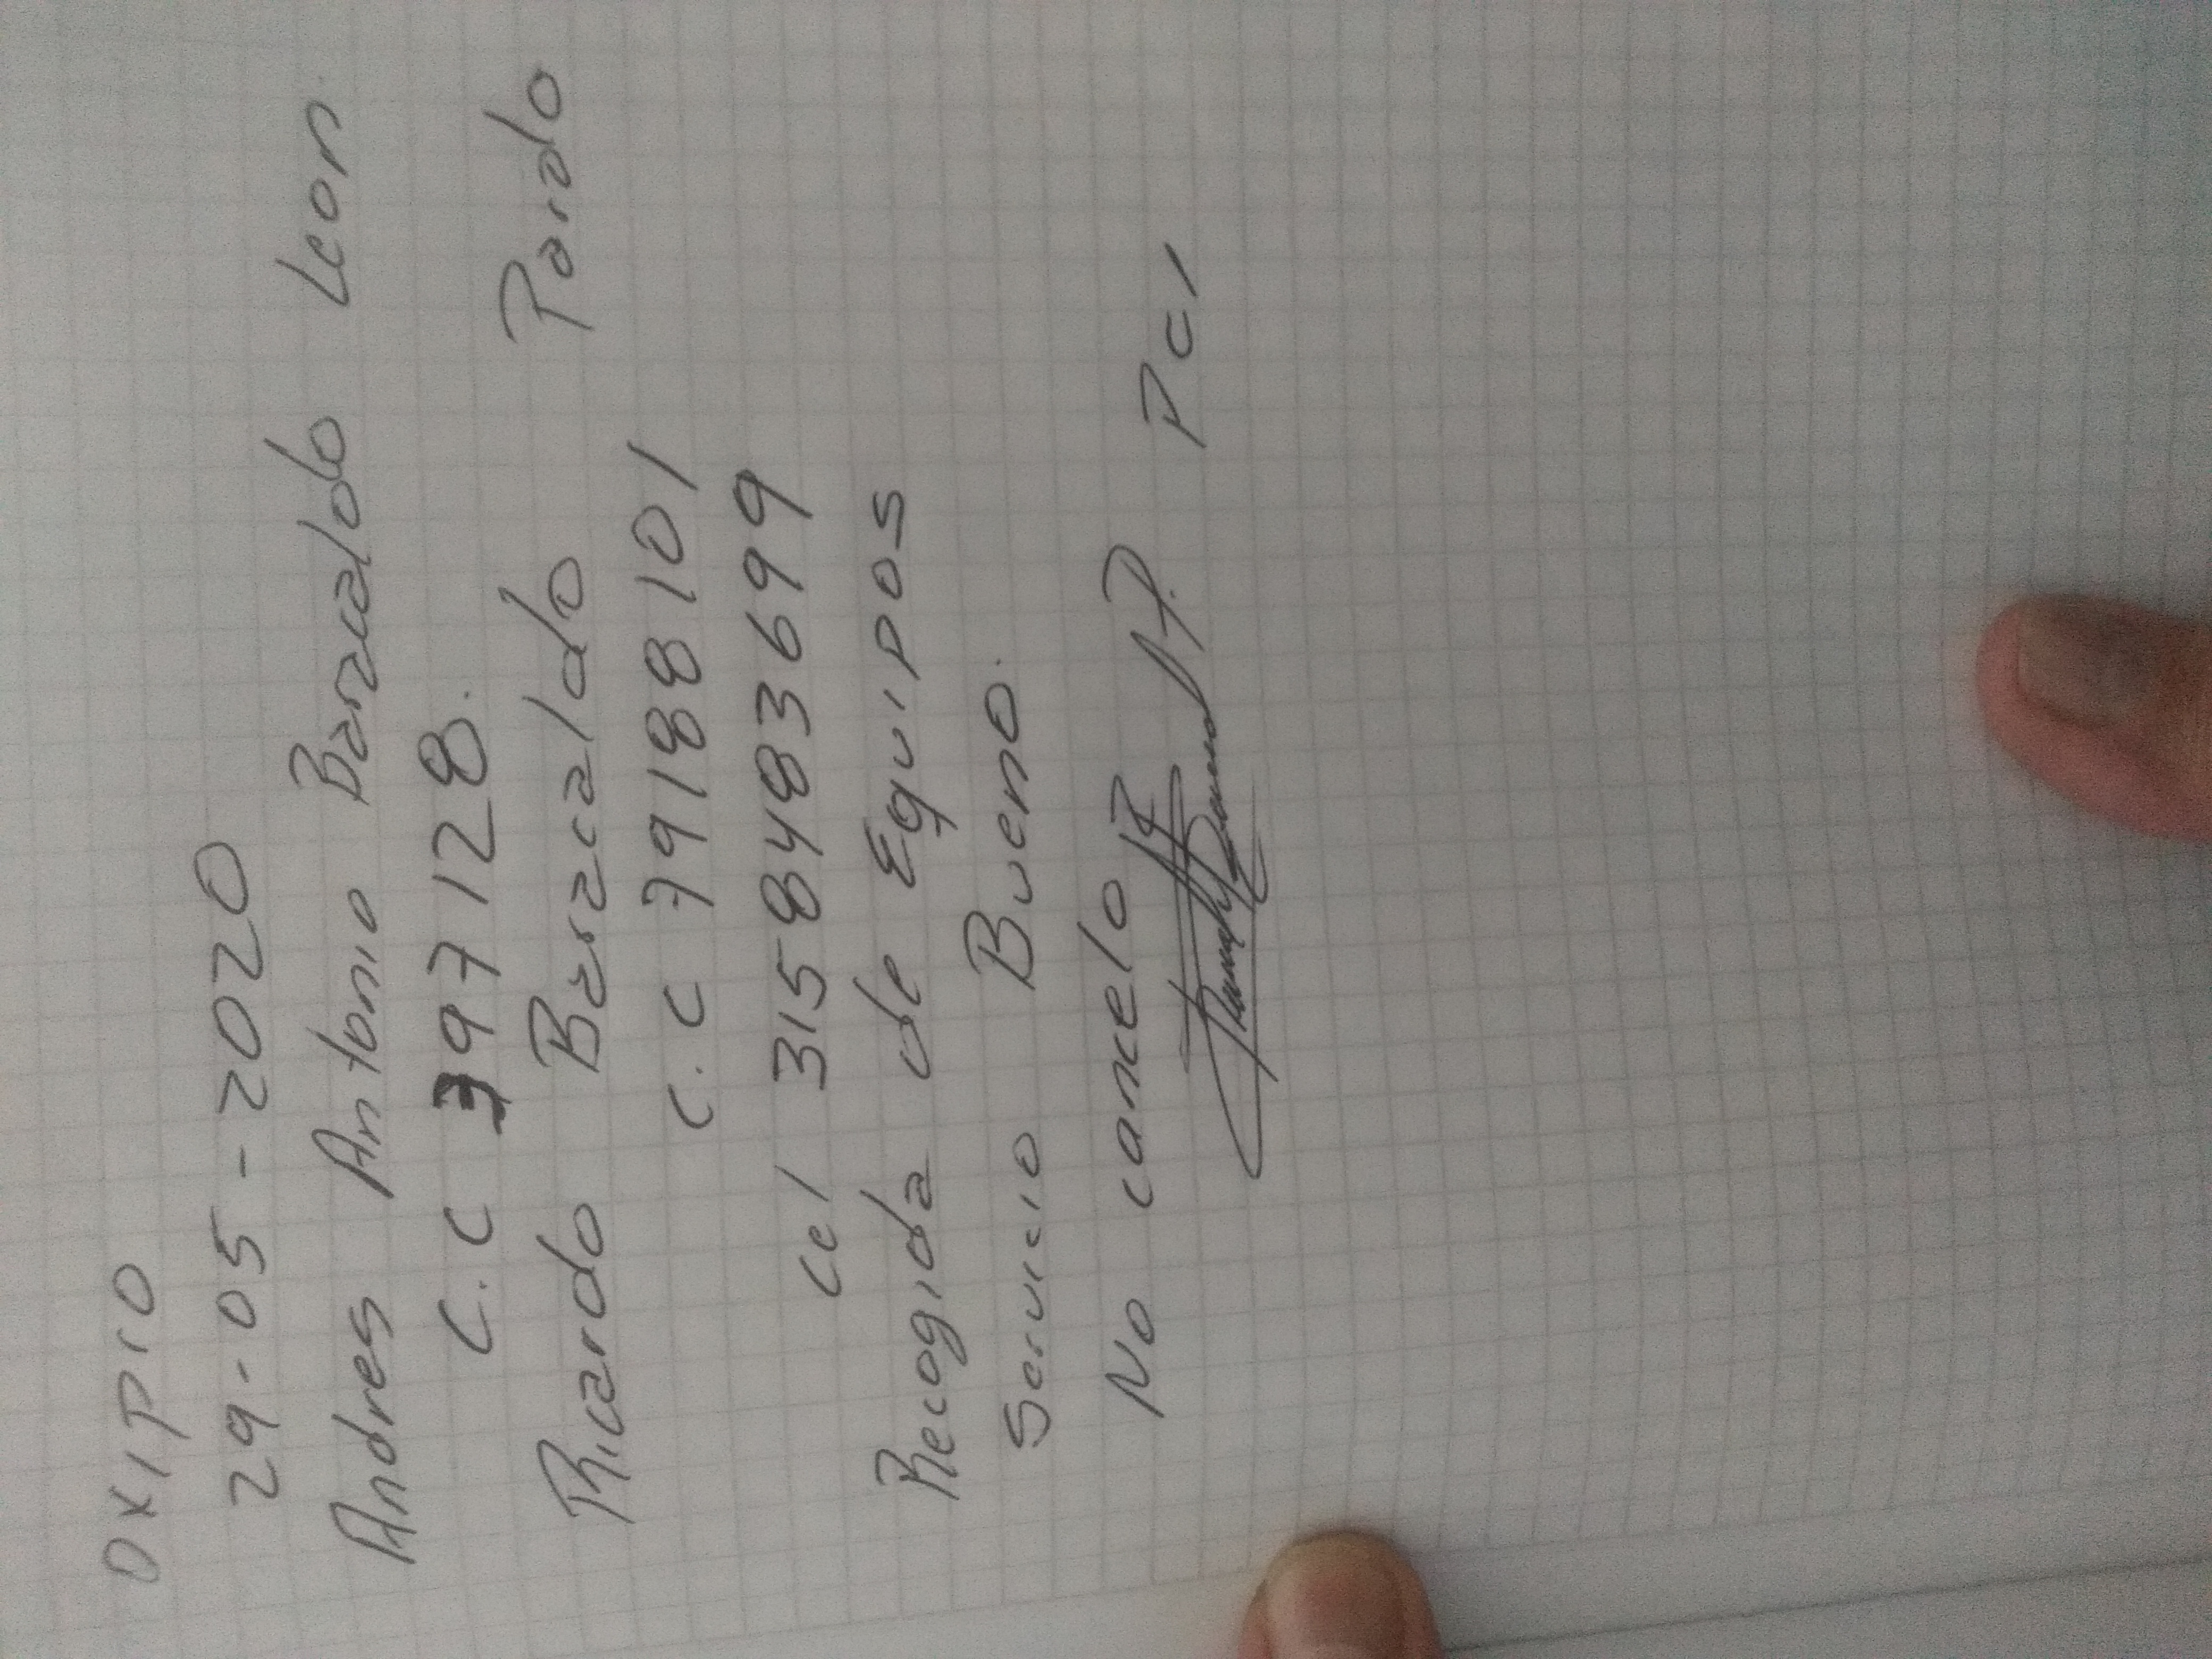 OXIPRO
29-05-2020
Andres Antonio Barzaldo Leon
C.C 397128.
Ricardo Barzaldo Pardo
C.C 79188101
Cel 3158483699
Recogida de Equipos
Servicio Bueno.
No cancelo PC1